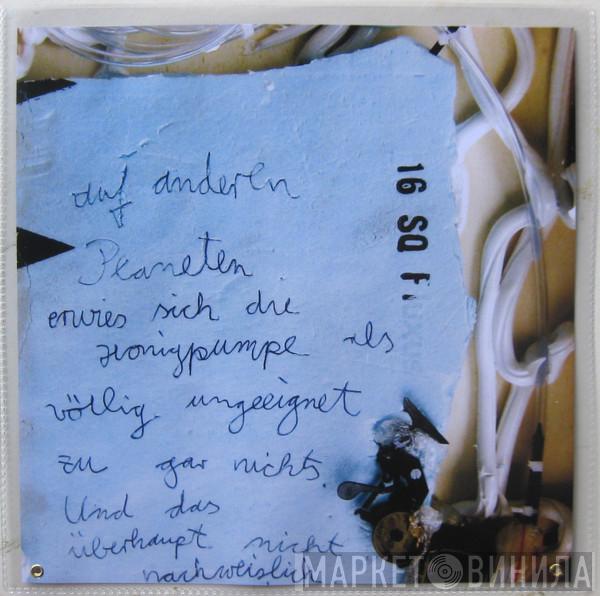 auf anderen
Planeten
erwies sich die
Honigpumpe als
völlig ungeeignet
zu gar nichts.
Und das
überhaupt nicht
nachweislich
16 SQ F
МАРКЕТ ВИНИЛА